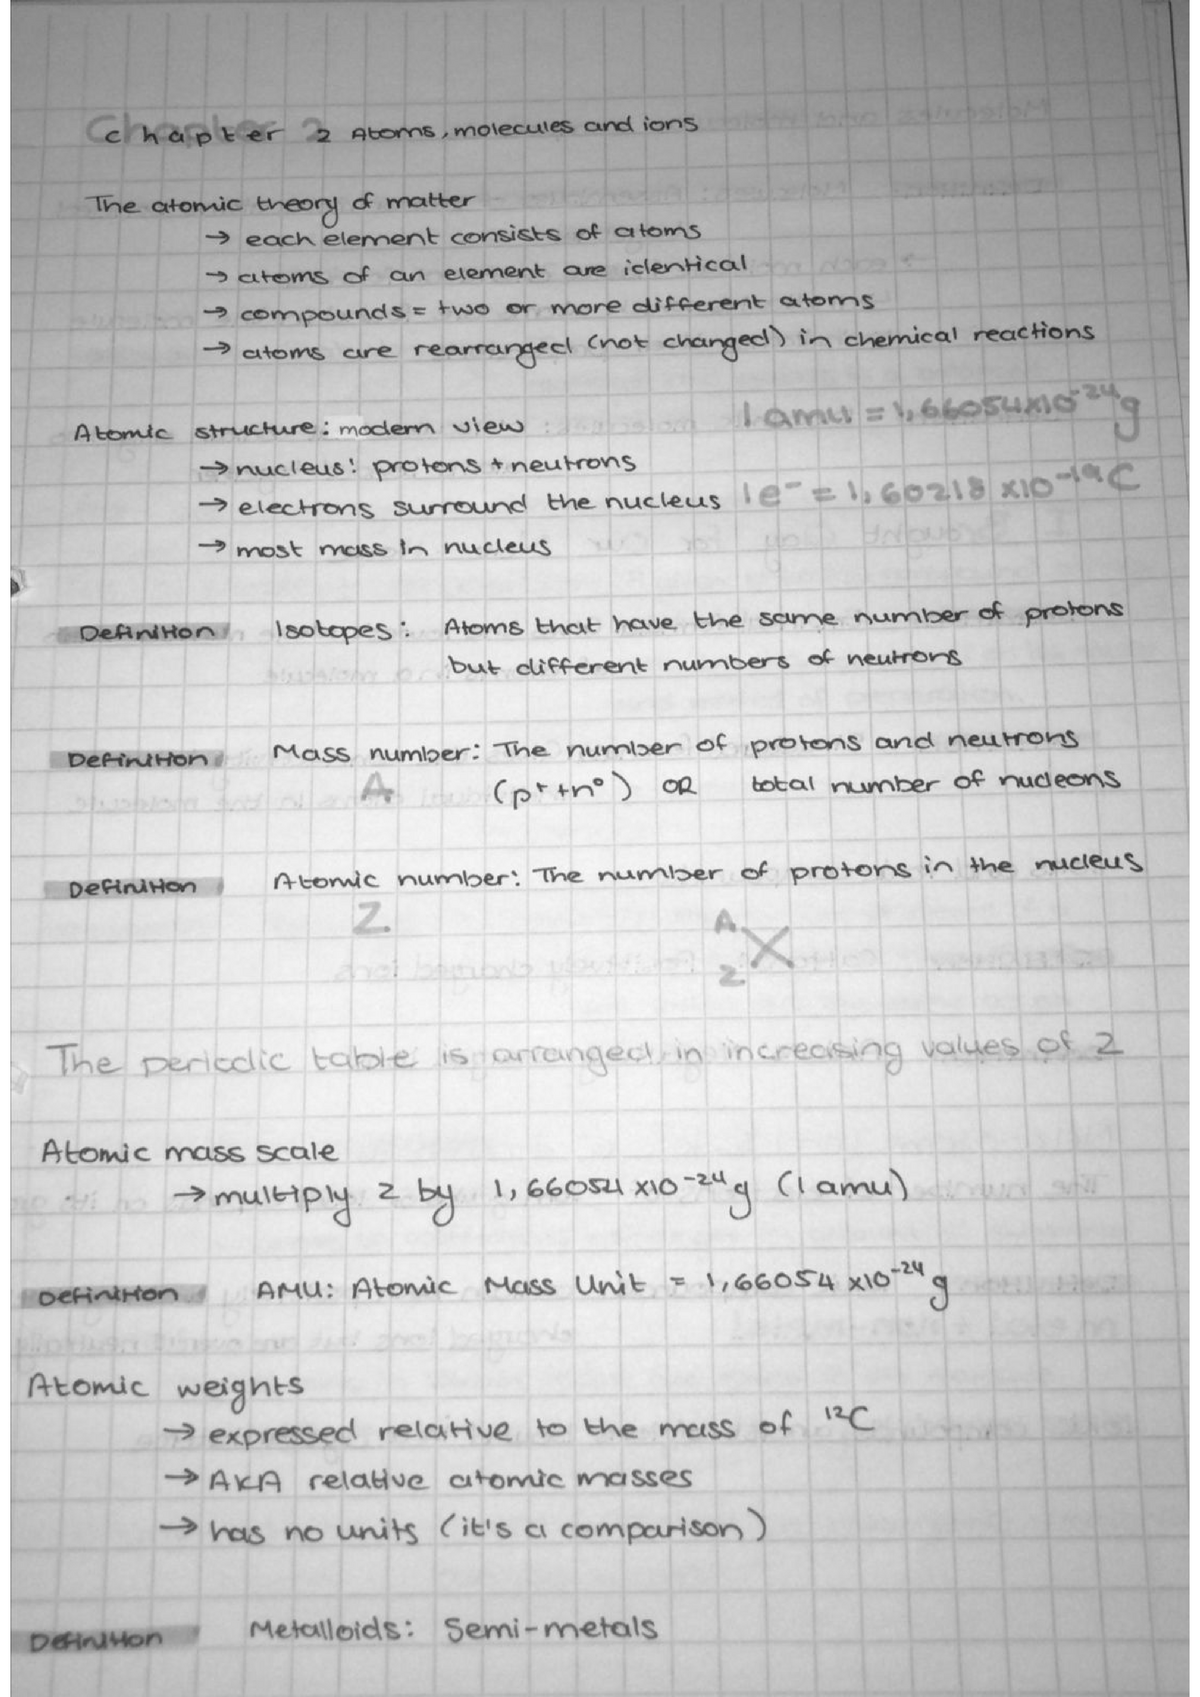 Chapter 2 Atoms, molecules and ions
The atomic theory of matter
→ each element consists of atoms
→ atoms of an element are identical
→ compounds = two or more different atoms
→ atoms are rearranged (not changed) in chemical reactions
1 amu = 1,66054x10⁻²⁴g
Atomic structure: modern view
→ nucleus: protons + neutrons
→ electrons surround the nucleus 1e⁻ = 1,60218 x10⁻¹⁹C
→ most mass in nucleus
Definition Isotopes: Atoms that have the same number of protons
but different numbers of neutrons
Definition Mass number: The number of protons and neutrons
A (p⁺+n⁰) OR total number of nucleons
Definition Atomic number: The number of protons in the nucleus
Z
A
X
Z
The periodic table is arranged in increasing values of Z
Atomic mass scale
→ multiply z by 1,66054 x10⁻²⁴g (1 amu)
Definition AMU: Atomic Mass Unit = 1,66054 x10⁻²⁴g
Atomic weights
→ expressed relative to the mass of ¹²C
→ AKA relative atomic masses
→ has no units (it's a comparison)
Definition Metalloids: Semi-metals